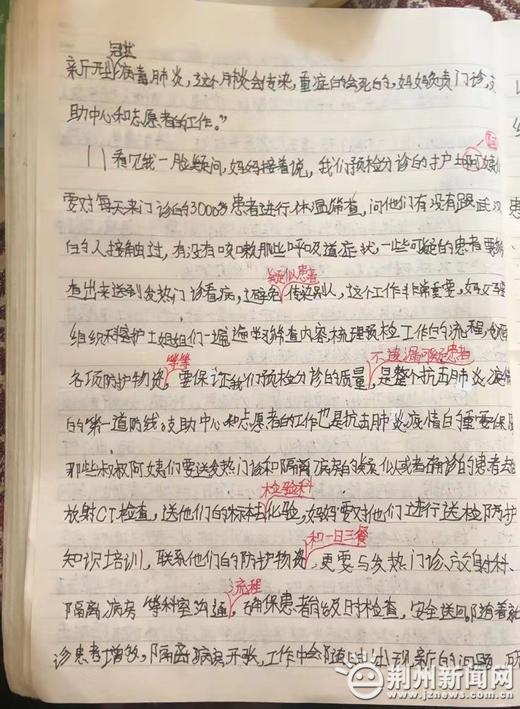 冠状
新型病毒肺炎,这个肺炎会传染,重症的会死的,妈妈负责门诊,支
助中心和志愿者的工作。”
看见我一脸疑问,妈妈接着说,我们预检分诊的护士阿姨
要对每天来门诊的3000多患者进行体温筛查,问他们有没有跟武汉
的人接触过,有没有咳嗽那些呼吸道症状,一些可疑的患者要筛
疑似患者
查出来送到发热门诊看病,避免传染别人,这个工作非常重要,妈妈要
组织科室护士姐姐们一遍遍教筛查内容,梳理预检工作的流程,
等等 不遗漏可疑患者
各项防护物资,要保证我们预检分诊的质量,是整个抗击肺炎疫情
的第一道防线,支助中心和志愿者的工作也是抗击肺炎疫情的重要保
那些叔叔阿姨们要送发热门诊和隔离病房的疑似或者确诊的患者去
检验科
放射CT检查,送他们的标本去化验,妈妈要对他们进行送检防护
和一日三餐
知识培训,联系他们的防护物资,更要与发热门诊、放射科、
流程
隔离病房等科室沟通,确保患者能及时检查,安全送回,随着就
诊患者增多,隔离病房开张,工作中会随时出现新的问题,
荆州新闻网
www.jznews.com.cn